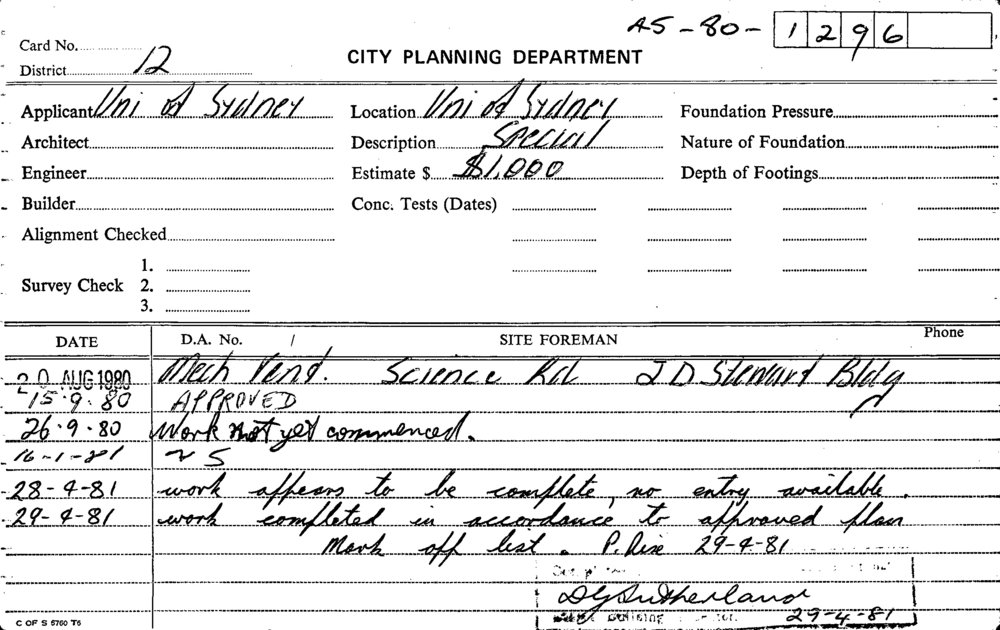 45-80-1296
Card No.
District 12
CITY PLANNING DEPARTMENT
Applicant Uni of Sydney Location Uni of Sydney Foundation Pressure
Architect Description Special Nature of Foundation
Engineer Estimate $ $1,000 Depth of Footings
Builder Conc. Tests (Dates)
Alignment Checked
1.
Survey Check 2.
3.
DATE D.A. No. / SITE FOREMAN Phone
20 AUG 1980 Mech Vent. Science Rd J D Stewart Bldg
15.9.80 APPROVED
26.9.80 Work not yet commenced.
16-1-81 N S
28-4-81 work appears to be complete, no entry available.
29-4-81 work completed in accordance to approved plan
Mark off list. P. 29-4-81
D G Sutherland
Building 29-4-81
C OF S 5760 T5